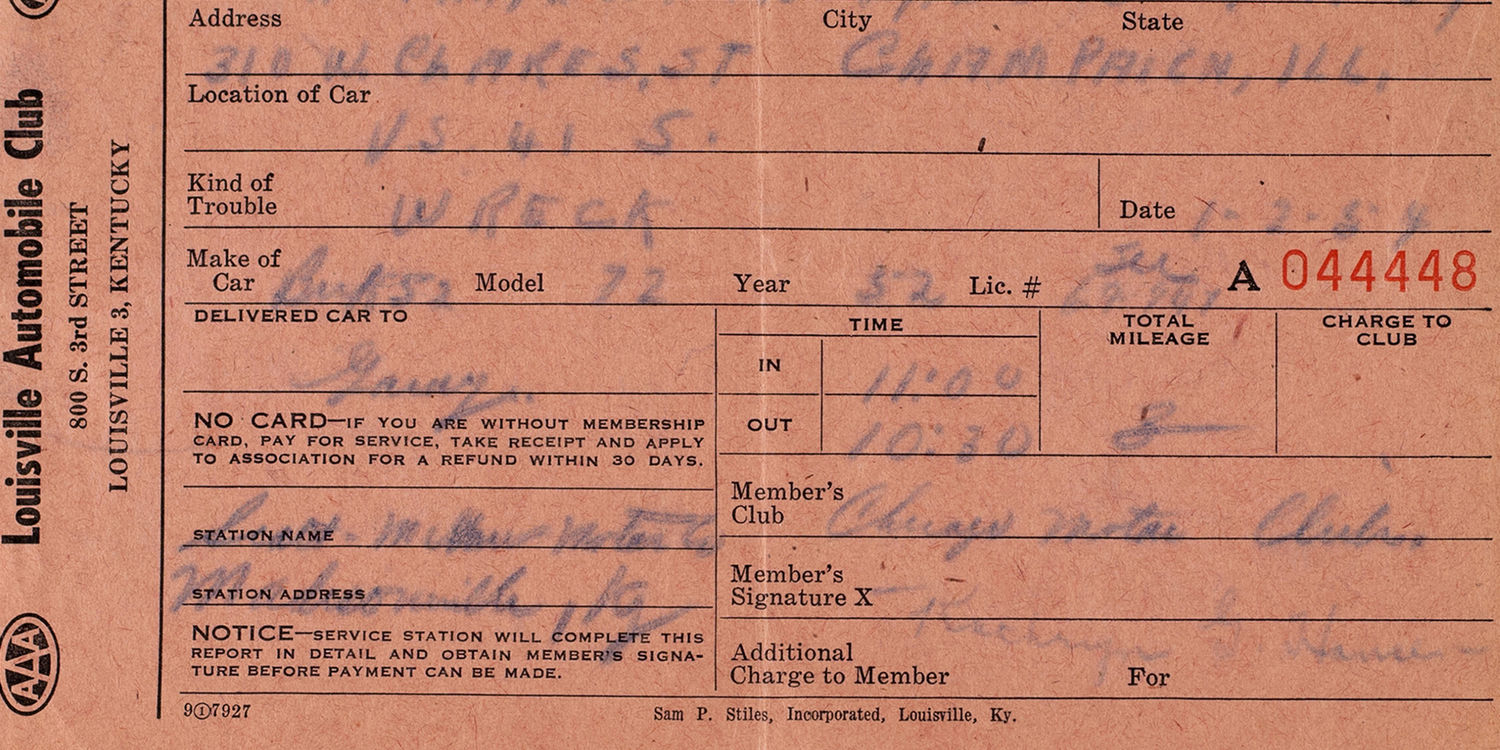 Louisville Automobile Club
800 S. 3rd STREET
LOUISVILLE 3, KENTUCKY
AAA
Address City State
310 W. ST CHAMPAIGN, ILL.
Location of Car
US 41 S.
Kind of
Trouble WRECK Date 1-2-54
Make of
Car Buick 52 Model 72 Year 52 Lic. # A 044448
DELIVERED CAR TO
TIME
TOTAL
MILEAGE
CHARGE TO
CLUB
IN 11:00
OUT 10:30
8
NO CARD—IF YOU ARE WITHOUT MEMBERSHIP
CARD, PAY FOR SERVICE, TAKE RECEIPT AND APPLY
TO ASSOCIATION FOR A REFUND WITHIN 30 DAYS.
STATION NAME Motor Co
STATION ADDRESS Madisonville, Ky
Member's
Club Chicago Motor Club.
Member's
Signature X
NOTICE—SERVICE STATION WILL COMPLETE THIS
REPORT IN DETAIL AND OBTAIN MEMBER'S SIGNA-
TURE BEFORE PAYMENT CAN BE MADE.
Additional
Charge to Member For
9①7927
Sam P. Stiles, Incorporated, Louisville, Ky.